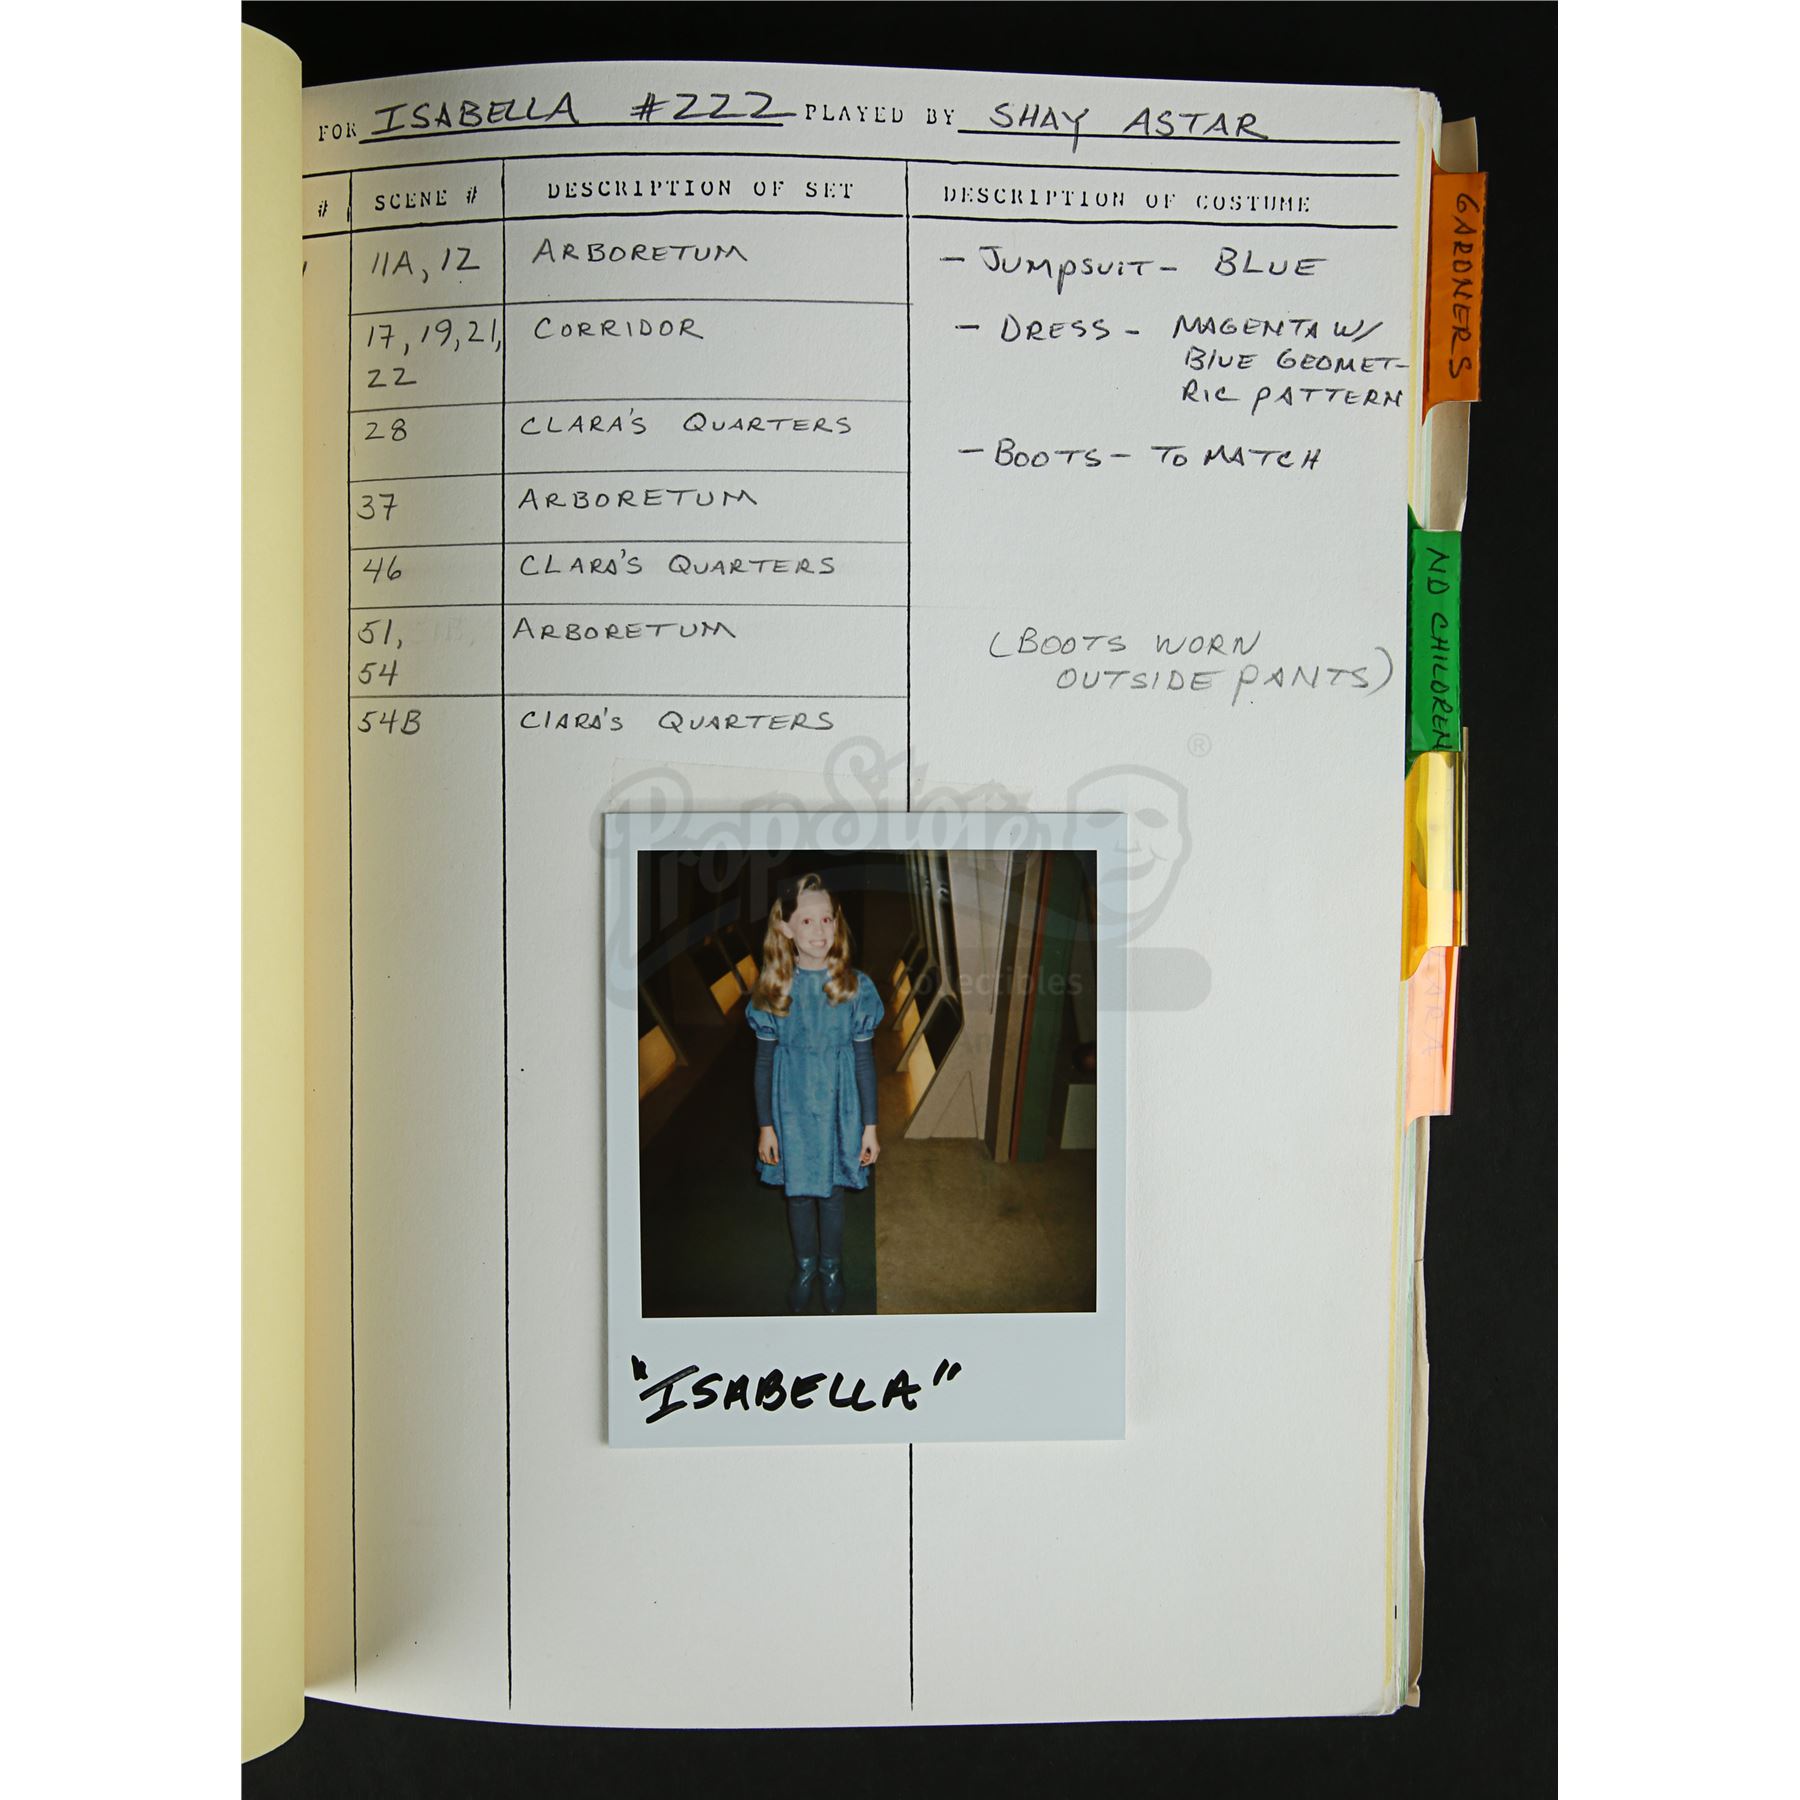 FOR ISABELLA #222 PLAYED BY SHAY ASTAR
# SCENE # DESCRIPTION OF SET DESCRIPTION OF COSTUME
11A, 12 ARBORETUM - JUMPSUIT - BLUE
17, 19, 21, CORRIDOR - DRESS - MAGENTA W/
22
BLUE GEOMET-
RIC PATTERN
28 CLARA'S QUARTERS
- BOOTS - TO MATCH
37 ARBORETUM
46 CLARA'S QUARTERS
51, ARBORETUM
54
(BOOTS WORN
OUTSIDE PANTS)
54B CLARA'S QUARTERS
"ISABELLA"
GARDNERS
ND CHILDREN
CLARA
Prop Store
®
Ultimate Collectibles